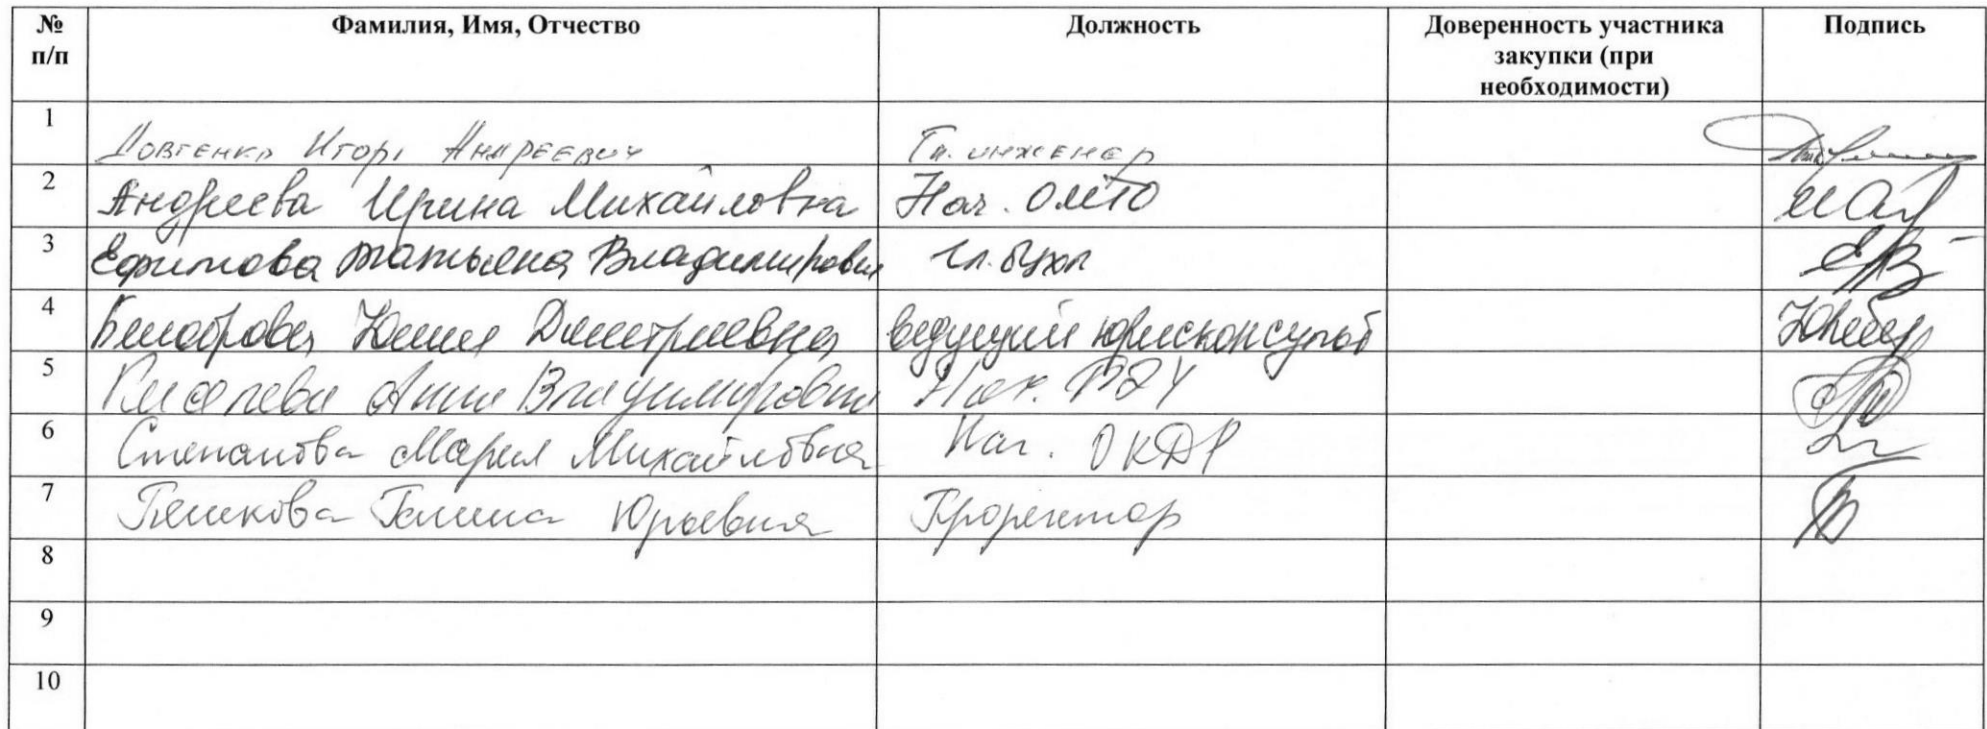 № п/п Фамилия, Имя, Отчество Должность Доверенность участника закупки (при необходимости) Подпись
1 Довгенко Игорь Андреевич Гл. инженер
2 Андреева Ирина Михайловна Нач. ОМТО
3 Ефимова Татьяна Владимировна гл. бухг
4 Юлия Дмитриевна ведущий юрисконсульт
5 Киселева Анна Владимировна Нач.
6 Степанова Мария Михайловна Нач. ОКДР
7 Галина Юрьевна Проректор
8
9
10